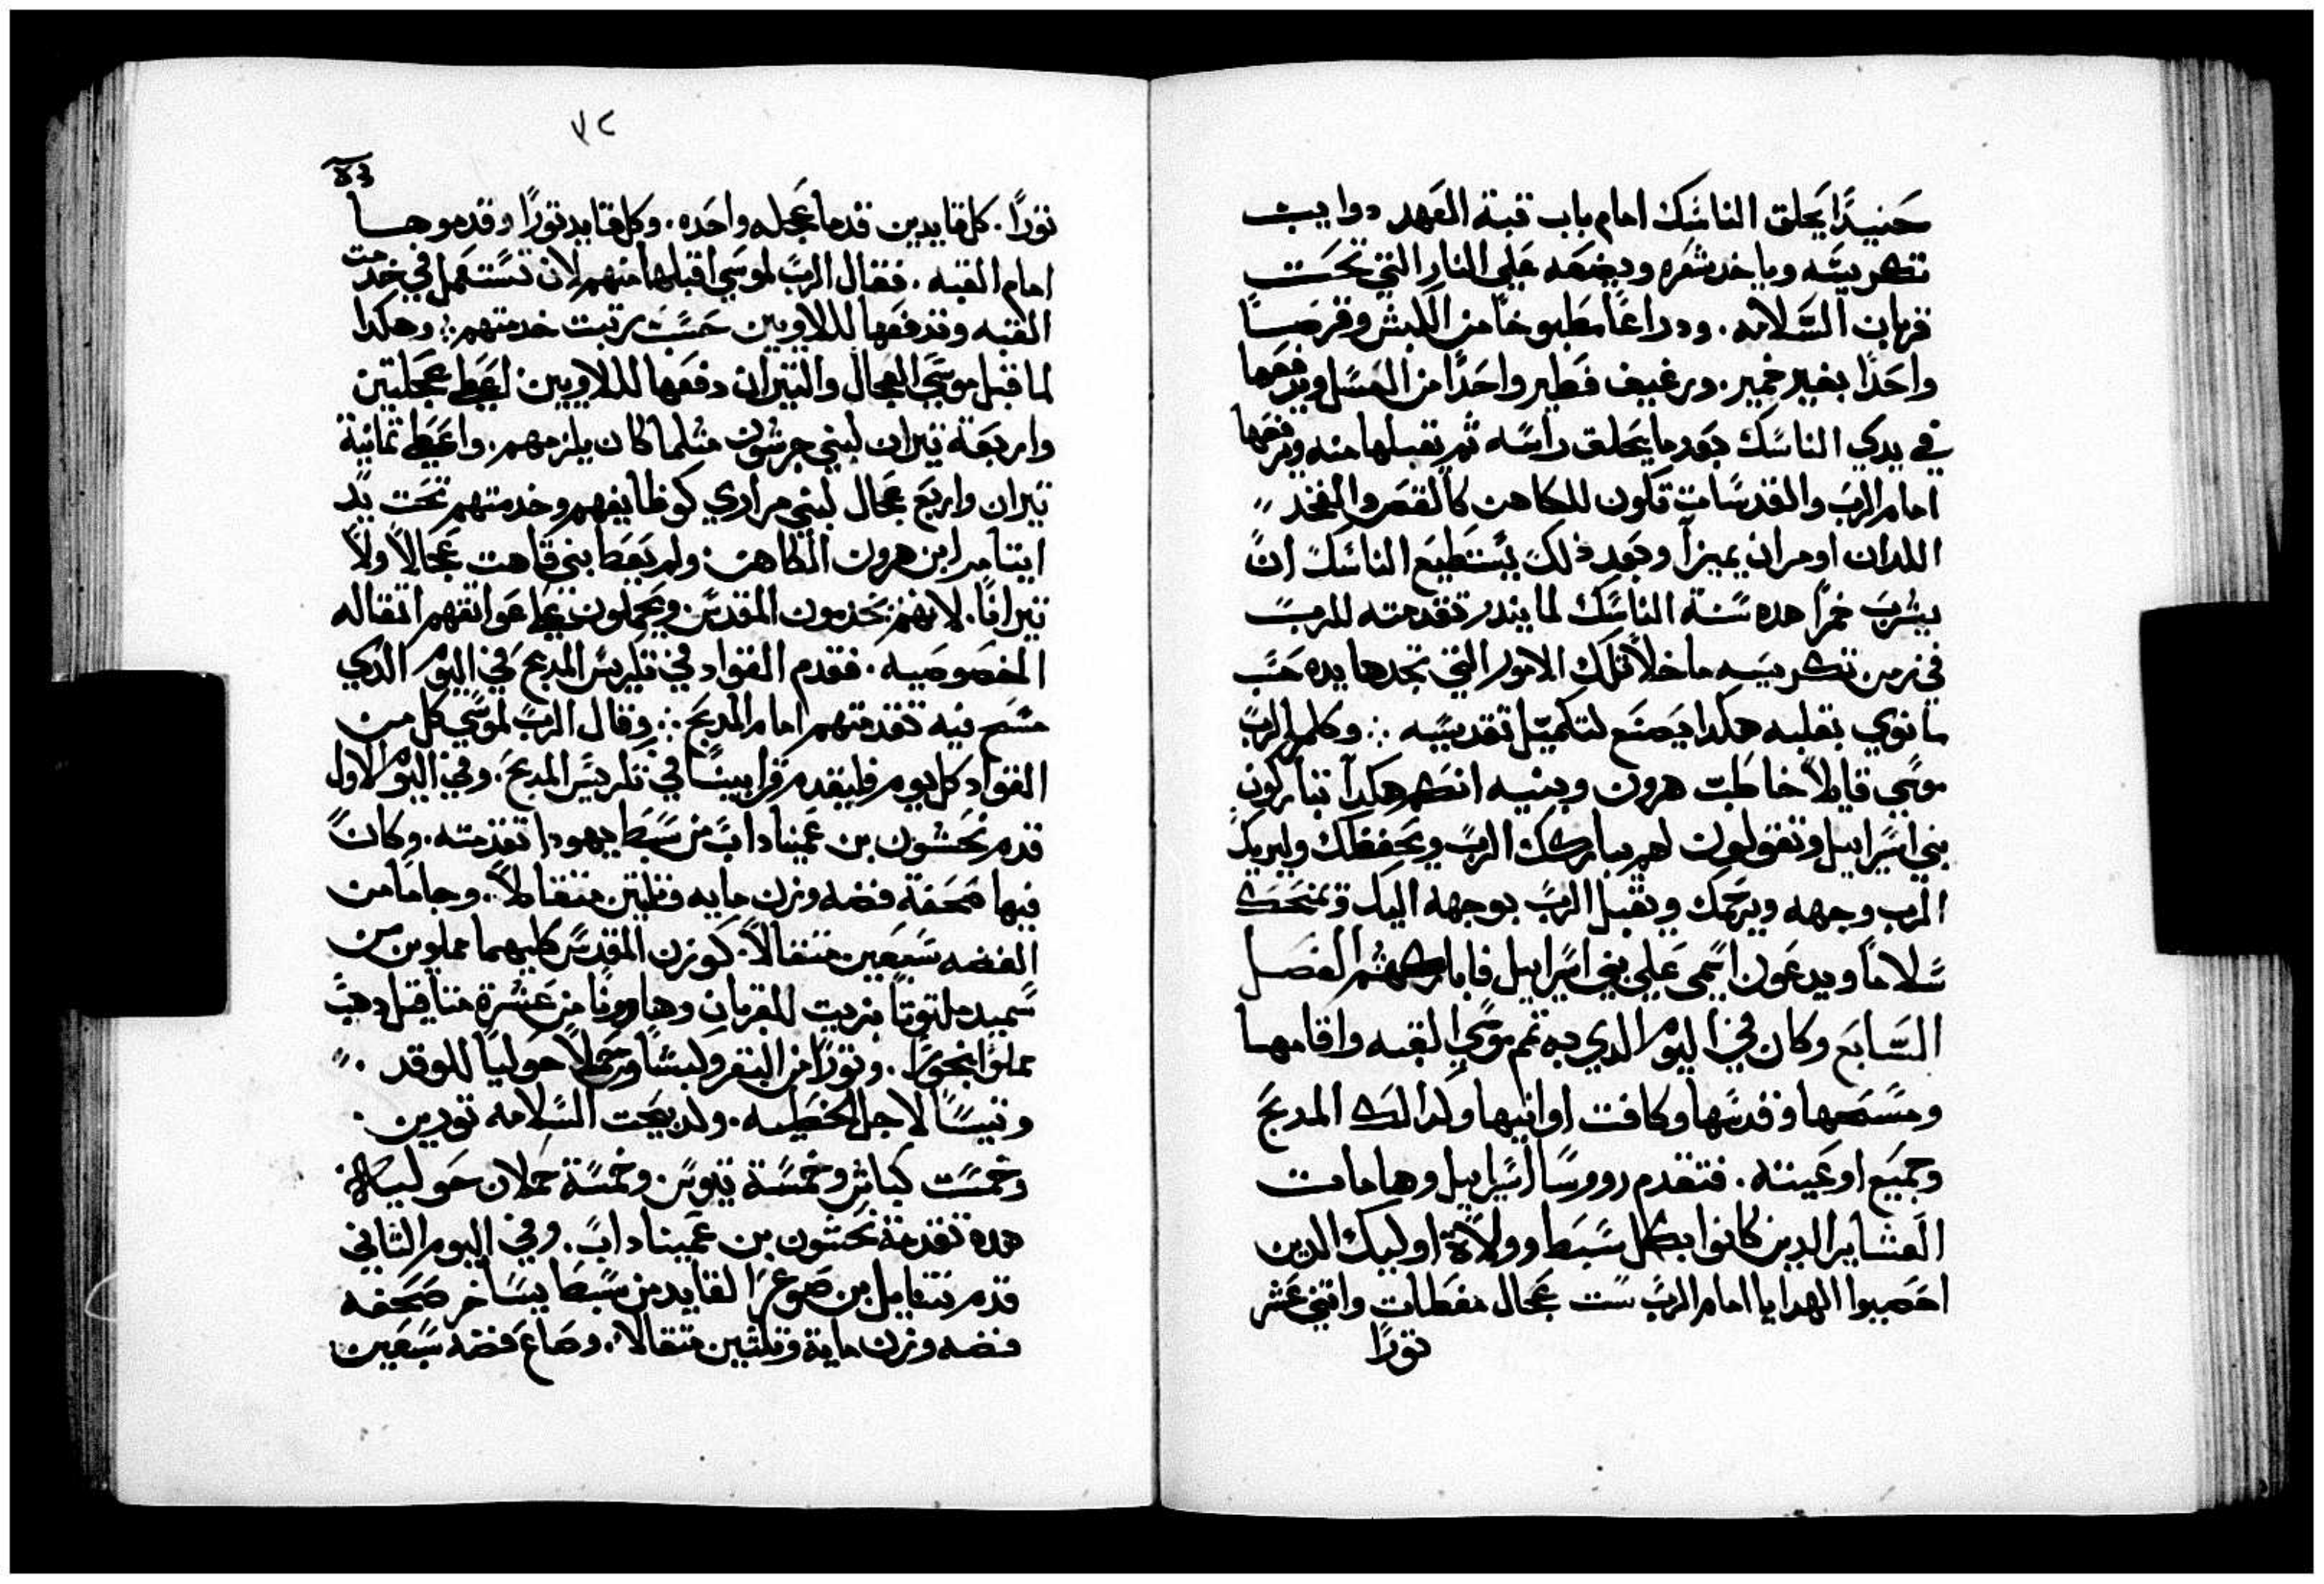 حنيدًا يحلق الناسك امام باب قبة العهد دوايب
تكريسه وياخد شعره ويضعه علي النار التي تحت
قربان السلامه. ودراعًا مطبوخًا من الكبش وقرصًا
واحدًا بغير خمير. ورغيف فطير واحدًا من العسل ويدفعها
في يدي الناسك بعد ما يحلق راسه ثم يقبلها منه ويرفعها
امام الرب والقدسات تكون للكاهن كالقص والفخد
اللدان اومران يميزا وبعد ذلك يستطيع الناسك ان
يشرب خمرًا هده سنة الناسك لما يندر تقدمته للرب
في زمن تكريسه ماخلا تلك الامور التي تجدها يده حسب
ما نوي بقلبه هكدا يصنع لتكميل تقديسه ∴ وكلم الرب
موسي قايلاً خاطب هرون وبنيه انكم هكدا تباركون
بني اسراييل وتقولون لهم يباركك الرب ويحفظك وليريك
الرب وجهه ويرحمك ويقبل الرب بوجهه اليك ويمنحك
سلامًا ويدعون اسمي علي بني اسراييل فاباركهم الفصل
السابع وكان في اليوم الدي به تم موسي القبه واقامها
ومسحها وقدسها وكافت اوانيها وكدالك المدبح
وجميع اوعيته. فتقدم رووسا اسراييل وهامات
العشاير الدين كانوا بكل سبط وولاة اوليك الدين
احصيوا الهدايا امام الرب ست عجال مغطات واتني عشر
تورًا
٧٢
تورًا. كل قايدين قدما عجله واحده. وكل قايد تورًا وقدموها
امام القبه. فقال الرب لموسي اقبلها منهم لان تستعمل في خدمت
القبه وتدفعها لللاويين حسب رتبت خدمتهم: وهكدا
لما قبل موسي العجال والتيران دفعها لللاويين اعطي عجلتين
واربعة تيران لبني جرشون متلما كان يلزمهم. واعطي تمانية
تيران واربع عجال لبني مراري كوظايفهم وخدمتهم تحت يد
ايتامر ابن هرون الكاهن: ولم يعط بني قاهت عجالاً ولا
تيرانًا. لانهم يخدمون المقدس ويحملون علي عواتقهم اتقاله
الخصوصيه. فقدم القواد في تكريس المدبح في اليوم الدي
مسح فيه تقدمتهم امام المدبح ∴ وقال الرب لموسي كل من
القواد كل يوم فليقدم قرابينًا في تكريس المدبح. وفي اليوم الاول
قدم نحشون بن عميناداب من سبط يهودا تقدمته. وكان
فيها صحفة فضه وزن مايه وتلتين متقالاً. وجامًا من
الفضه سبعين متقالاً. كوزن المقدس كليهما مملوين من
سميد ملتوتًا بزيت للقربان وهاوونًا من عشرة متاقيل دهب
مملوًا بخورًا. وتورًا من البقر وكبشًا وحملاً حوليًا للوقد.
وتيسًا لاجل الخطيه. ولدبيحت السلامه تورين.
وخمست كباش وخمسة تيوس وخمسة حملان حوليه
هده تقدمة نحشون بن عميناداب. وفي اليوم التاني
قدم نتنايل بن صوعر القايد من سبط يساخر صحفه
فضه وزن ماية وتلتين متقالا. وصاع فضه سبعين